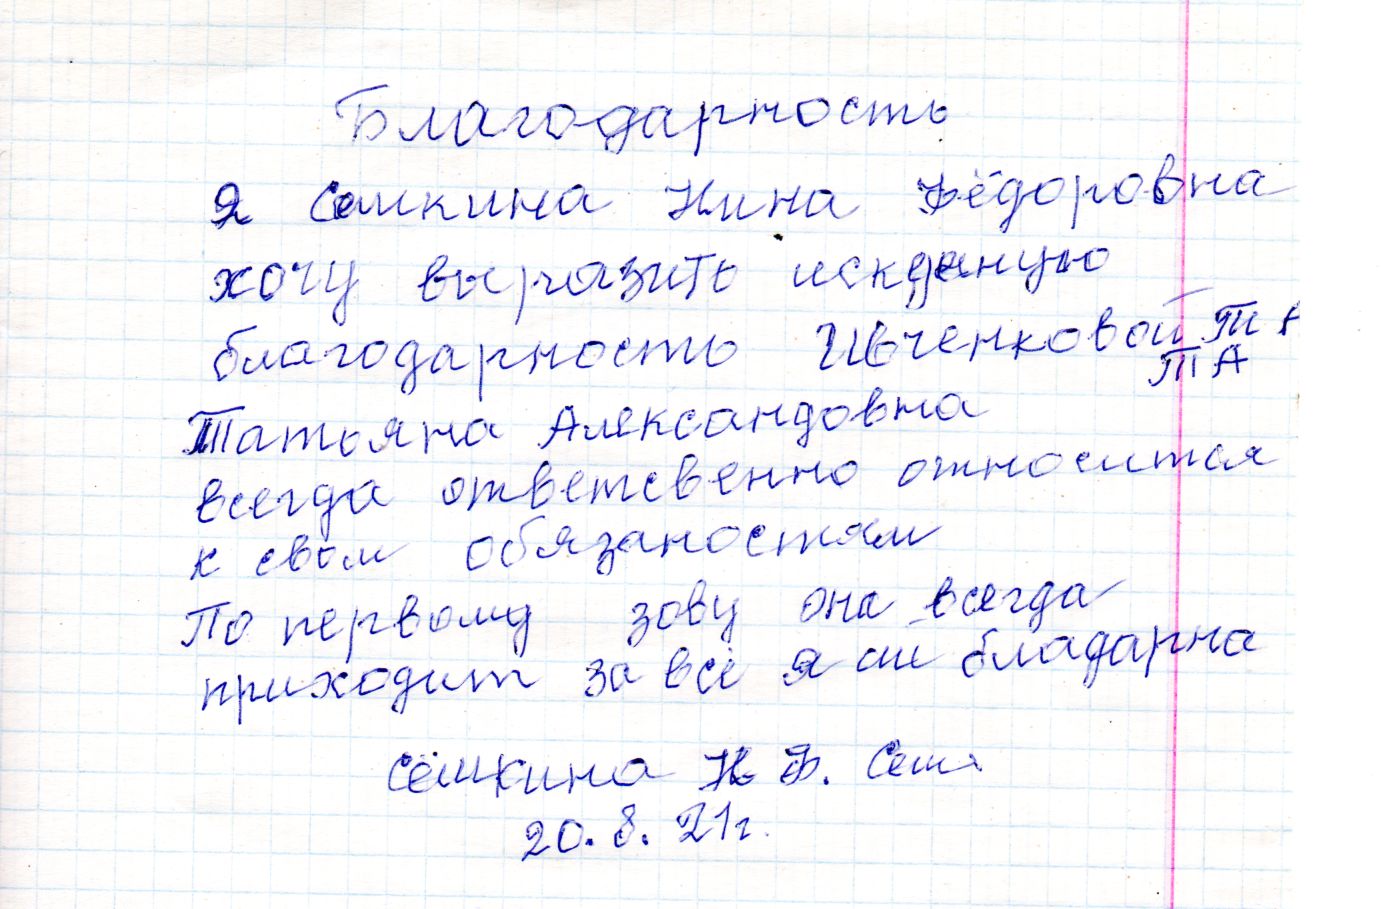 Благодарность
Я Семкина Нина Фёдоровна
хочу выразить искреную
благодарность Ивченковой
Т А
Татьяна Александовна
всегда ответсвенно относится
к свом обязаностям
По первому зову она всегда
приходит за всё я ей бладарна
Сёмкина Н Ф. Сем
20. 8. 21г.